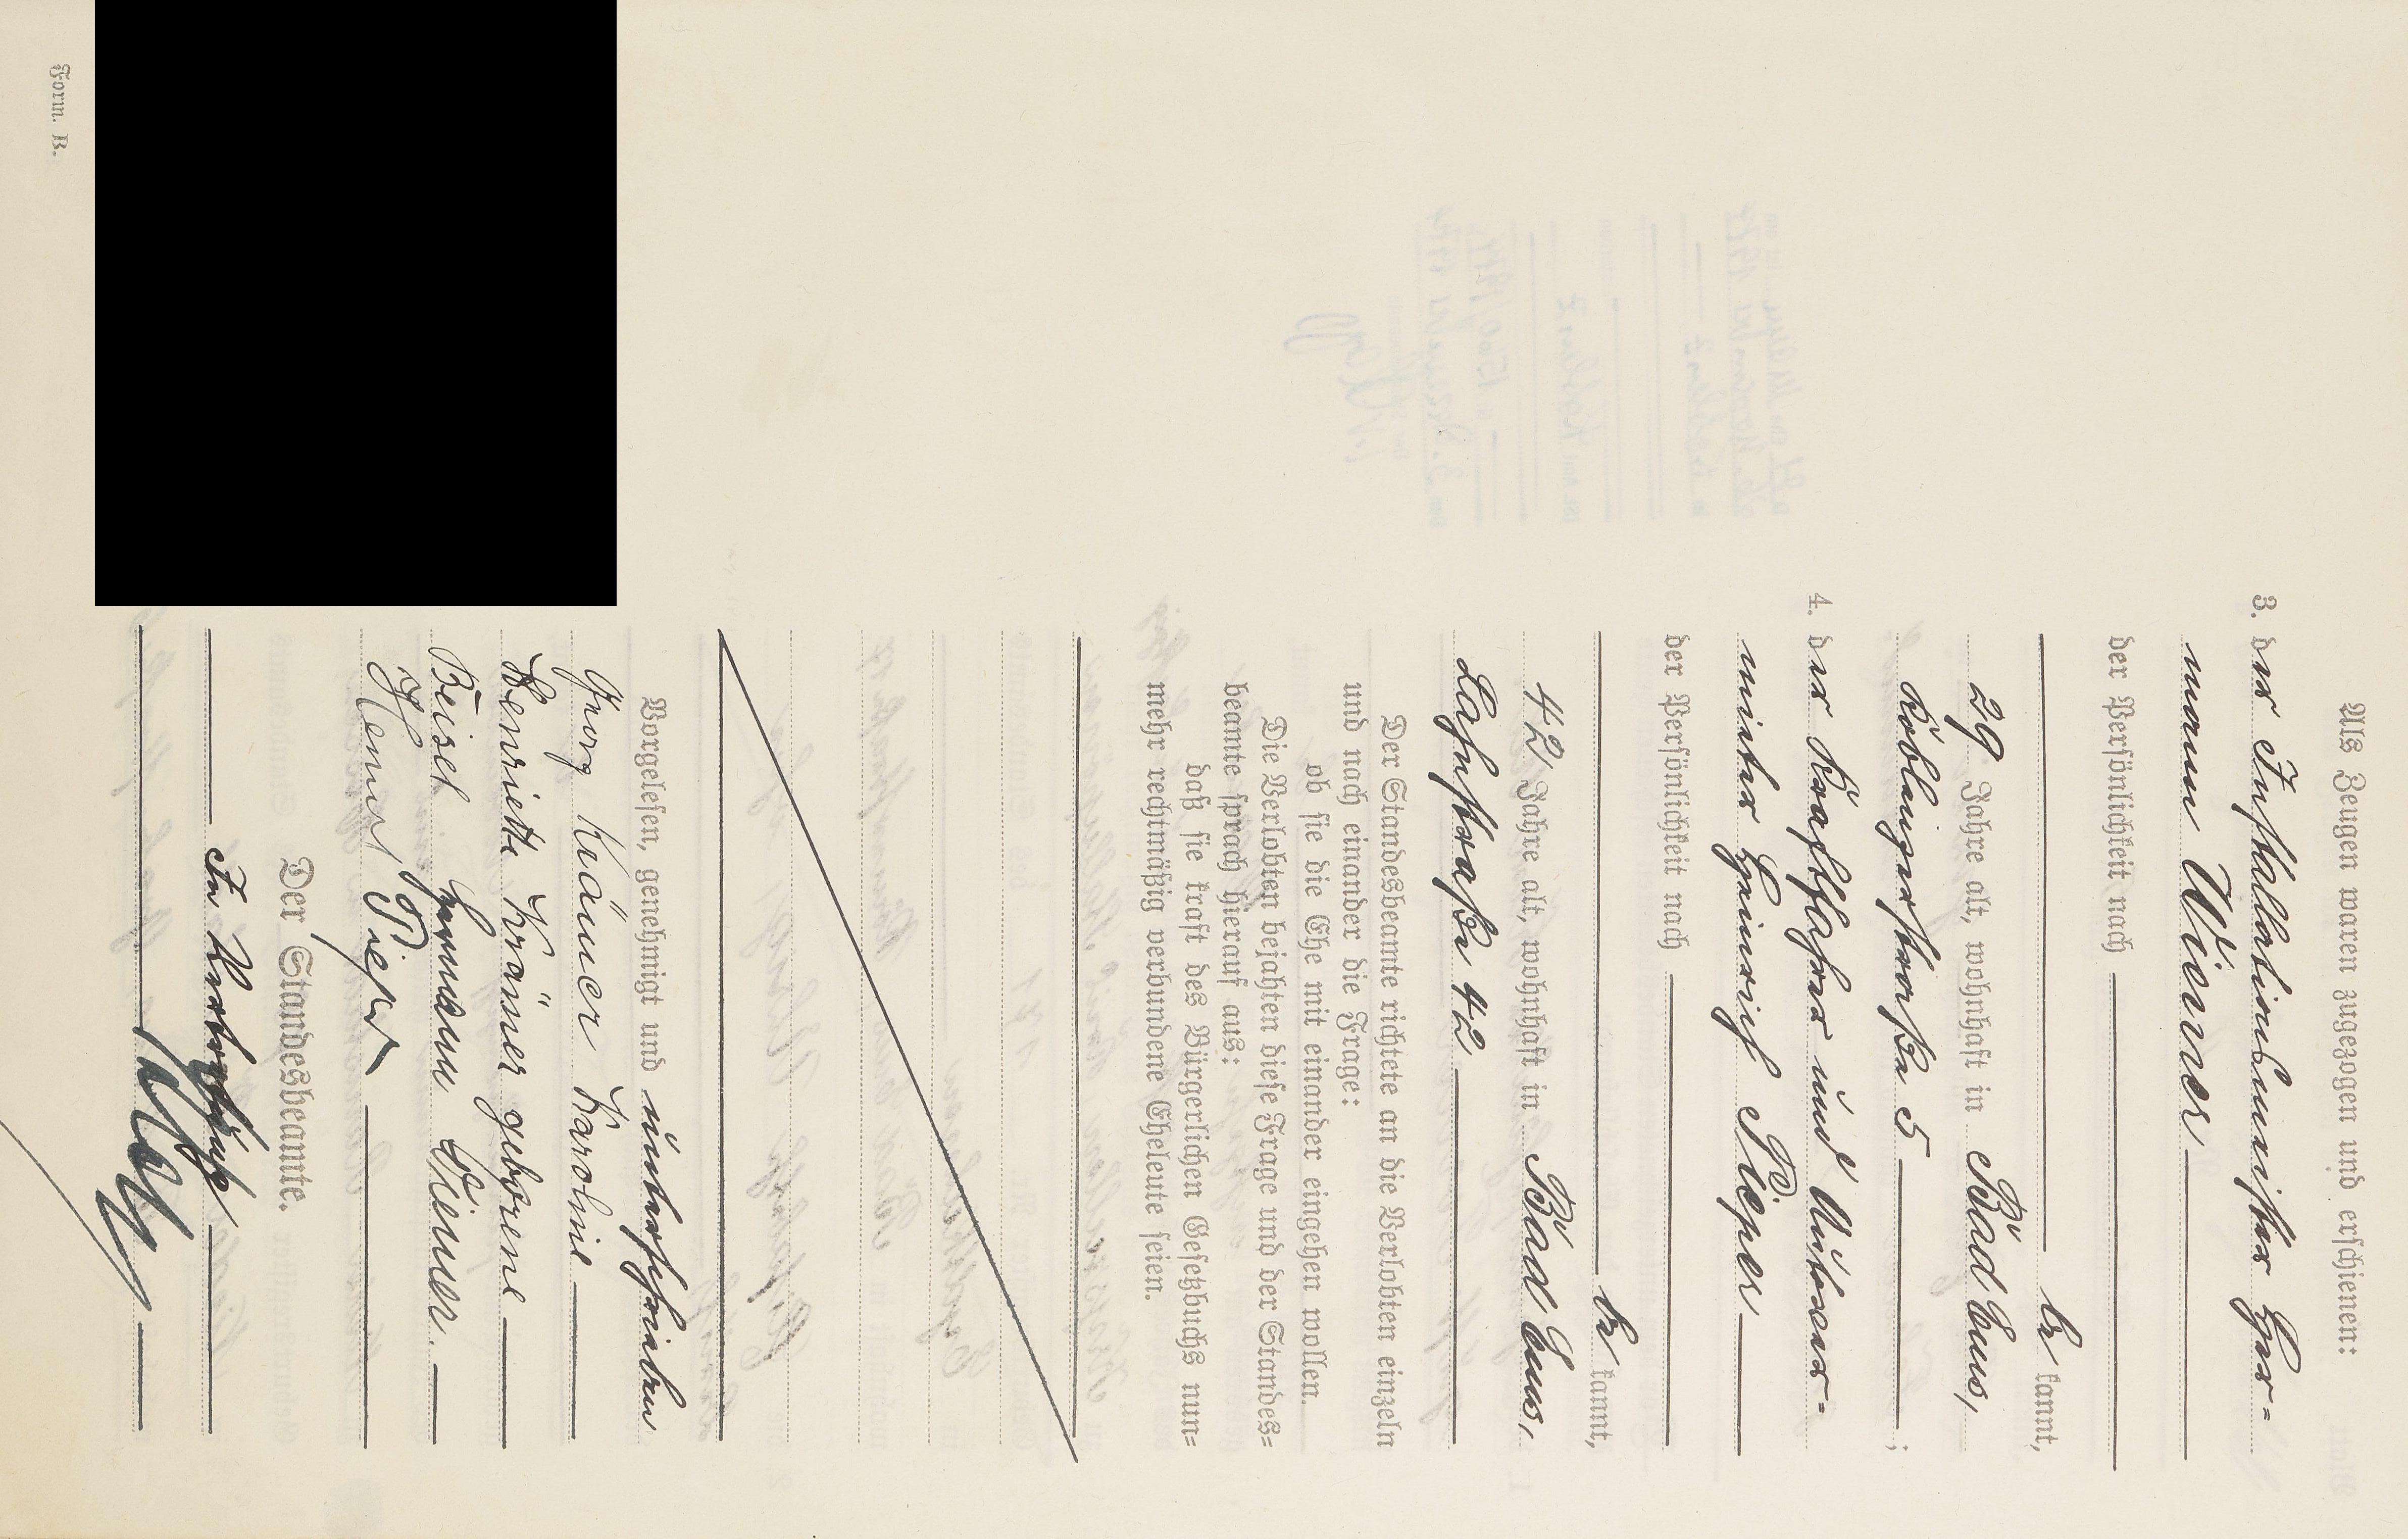 Als Zeugen waren zugezogen und erschienen:
3. der Installationsmeister Her=
mann Wiemer
der Persönlichkeit nach
be kannt,
29 Jahre alt, wohnhaft in Bad Ems,
Koblenzerstraße 5 ;
4. der Kraftfahrer und
Heinrich Pieper
der Persönlichkeit nach
be kannt,
42 Jahre alt, wohnhaft in Bad Ems,
Lahnstraße 42
Der Standesbeamte richtete an die Verlobten einzeln
und nach einander die Frage:
ob sie die Ehe mit einander eingehen wollen.
Die Verlobten bejahten diese Frage und der Standes=
beamte sprach hierauf aus:
daß sie kraft des Bürgerlichen Gesetzbuchs nun=
mehr rechtmäßig verbundene Eheleute seien.
Vorgelesen, genehmigt und unterschrieben
Georg Krämer Karoline
Henriette Krämer geborene
Beisel Hermann Wiemer.
Der Standesbeamte.
In Vertretung
Form. B.